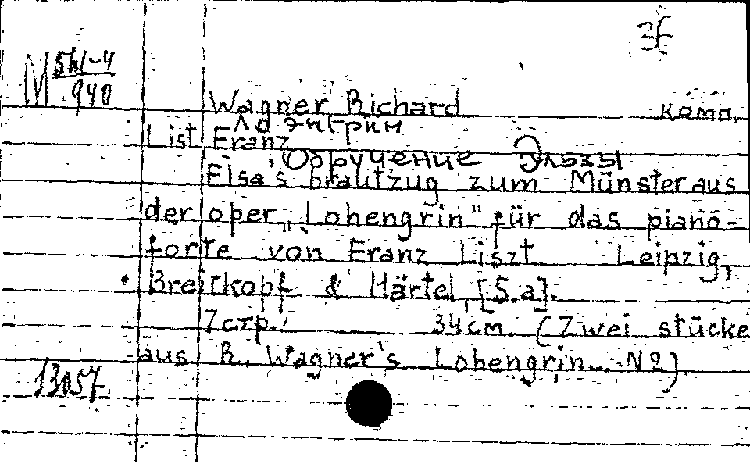 3Г
М 5h1-4
940
Wagner Richard комп.
Лоэнгрин
List Franz
Обручение Эльзы
Elsa's brautzug zum Münster aus
der oper „Lohengrin" für das piano-
forte von Franz Liszt. Leipzig,
Breitkopf & Härtel, [S.a].
7стр. 34см. (Zwei stücke
aus R. Wagner's Lohengrin. N2)
13057